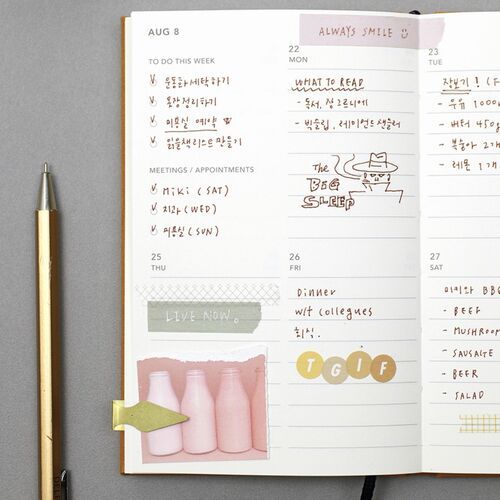 AUG 8
ALWAYS SMILE
TO DO THIS WEEK
운동화 세탁하기
통장정리하기
미용실 예약
읽을책 리스트 만들기
MEETINGS / APPOINTMENTS
MIKI (SAT)
치과 (WED)
미용실 (SUN)
22
MON
WHAT TO READ
- 독서, 장 그르니에
- 빅슬립, 레이먼드 챈들러
The
BIG
SLEEP
23
TUE
장보기! (F
- 우유 1000
- 버터 450g
- 복숭아 2개
- 레몬 1개
25
THU
LIVE NOW.
26
FRI
Dinner
wit collegues
회식.
TGIF
27
SAT
미키와 BBQ
- BEEF
- MUSHROOM
- SAUSAGE
- BEER
- SALAD